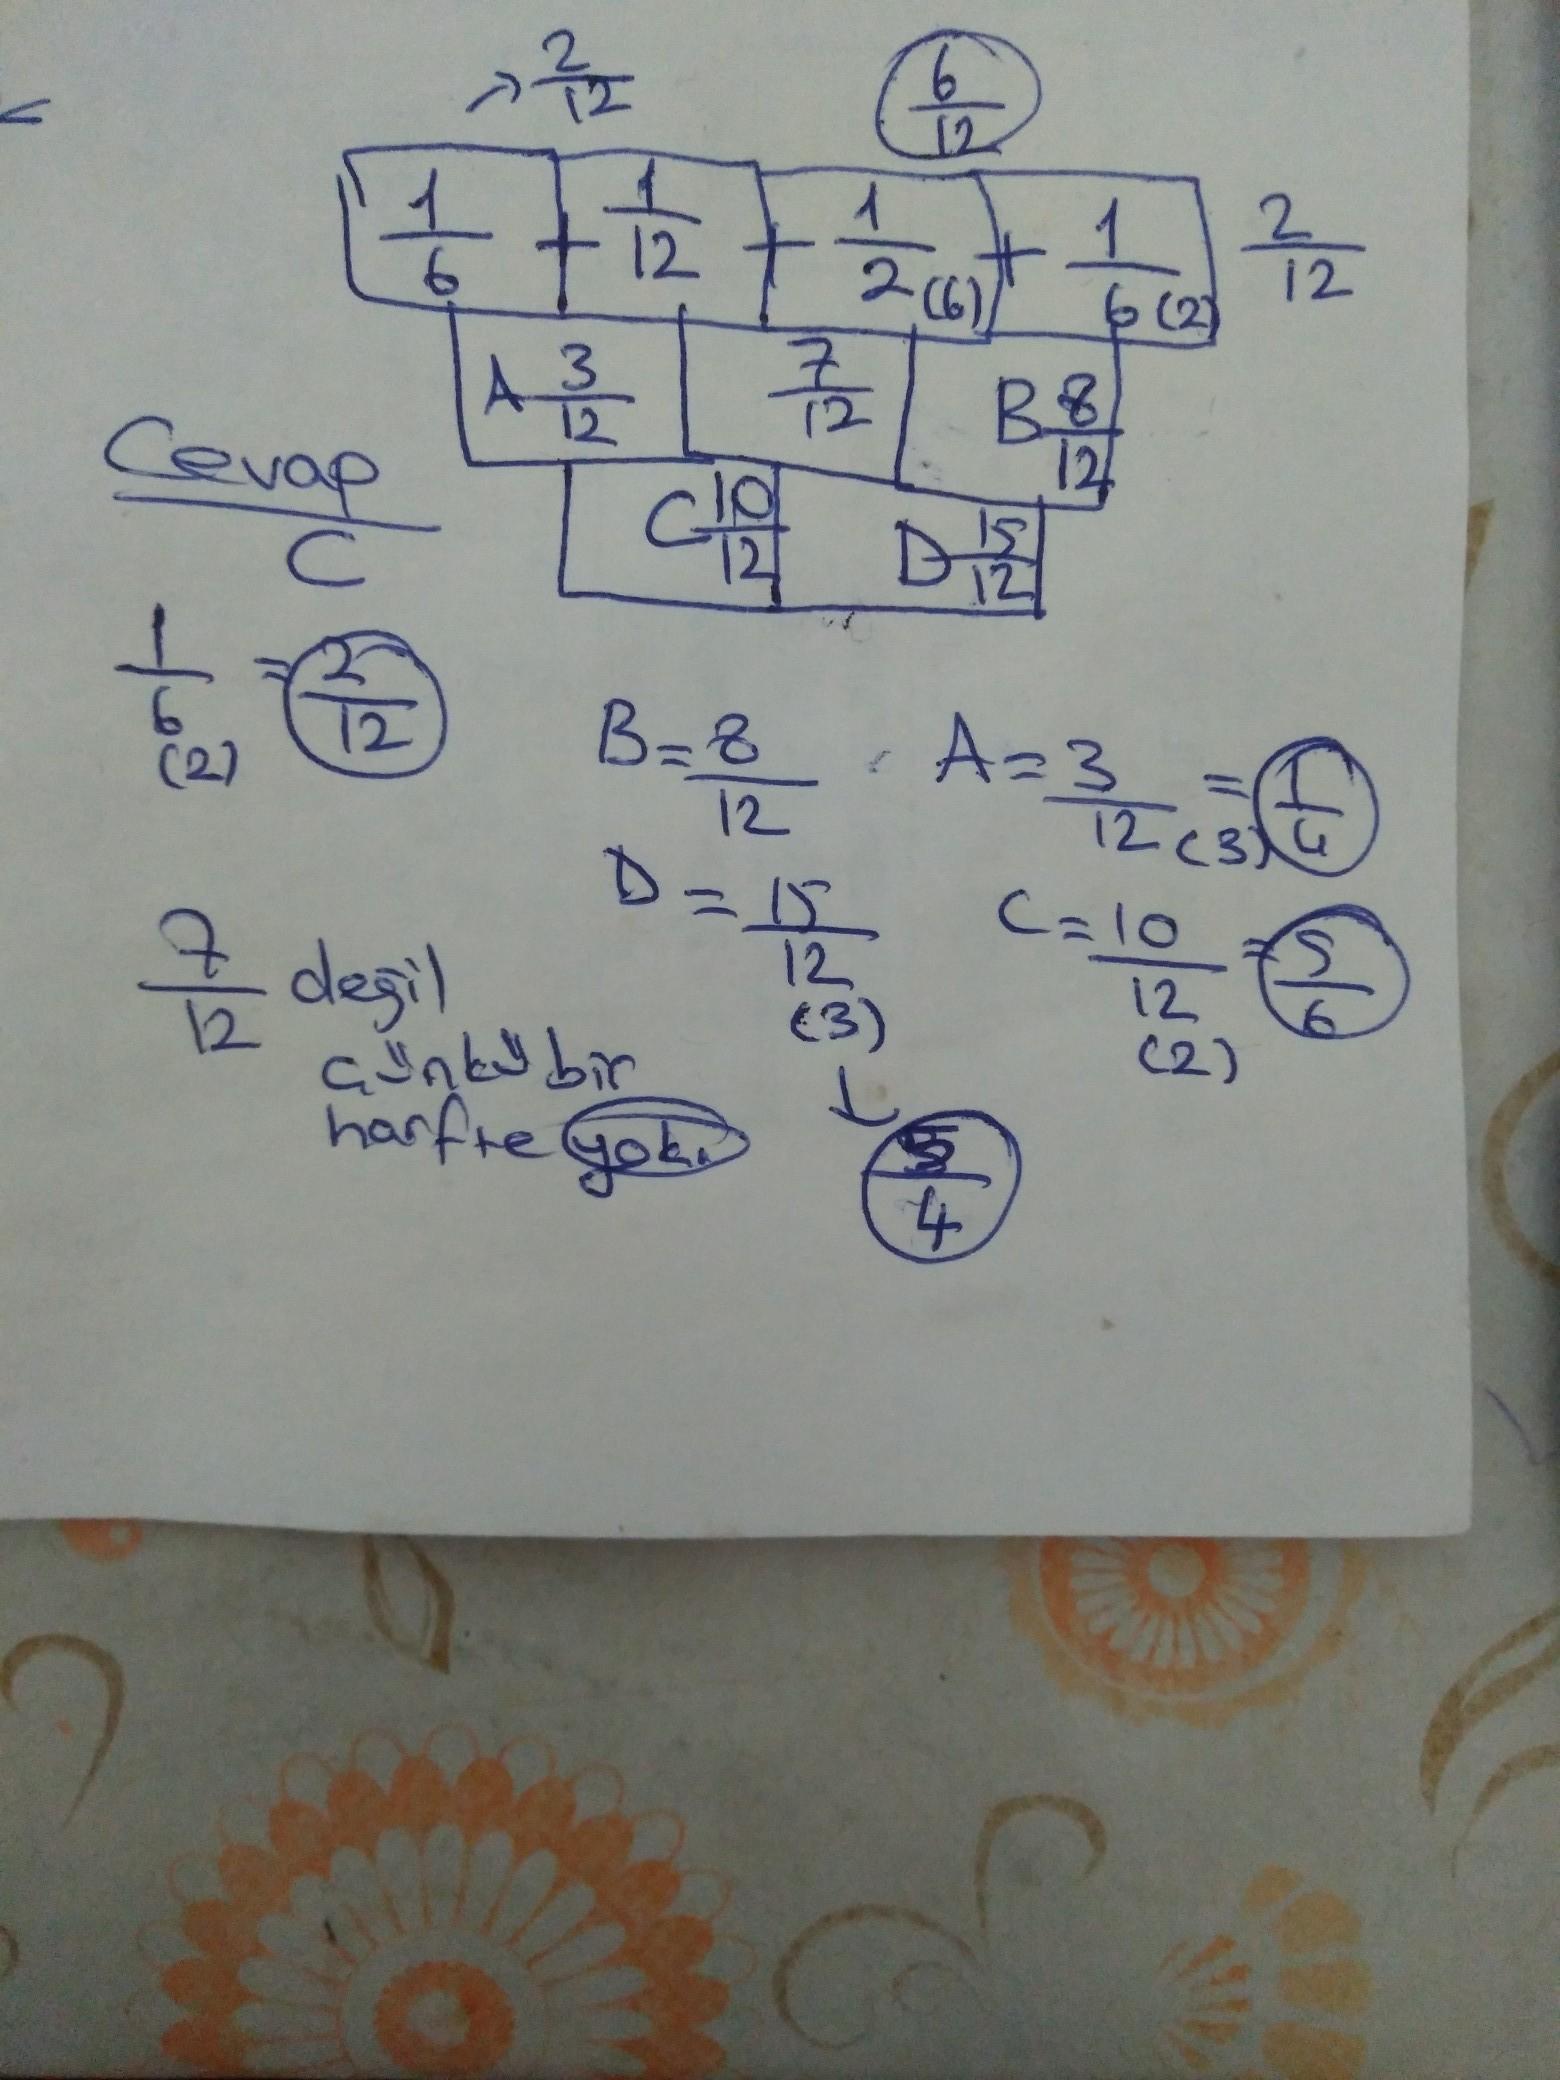 → 2/12
6/12
1/6 + 1/12 + 1/2 (6) + 1/6 (2) 2/12
A 3/12 7/12 B 8/12
C 10/12 D 15/12
Cevap
C
1/6 (2) = 2/12
B = 8/12 A = 3/12 (3) = 1/4
D = 15/12 (3) C = 10/12 (2) = 5/6
↓
5/4
7/12 değil
çünkü bir
harfte yok.